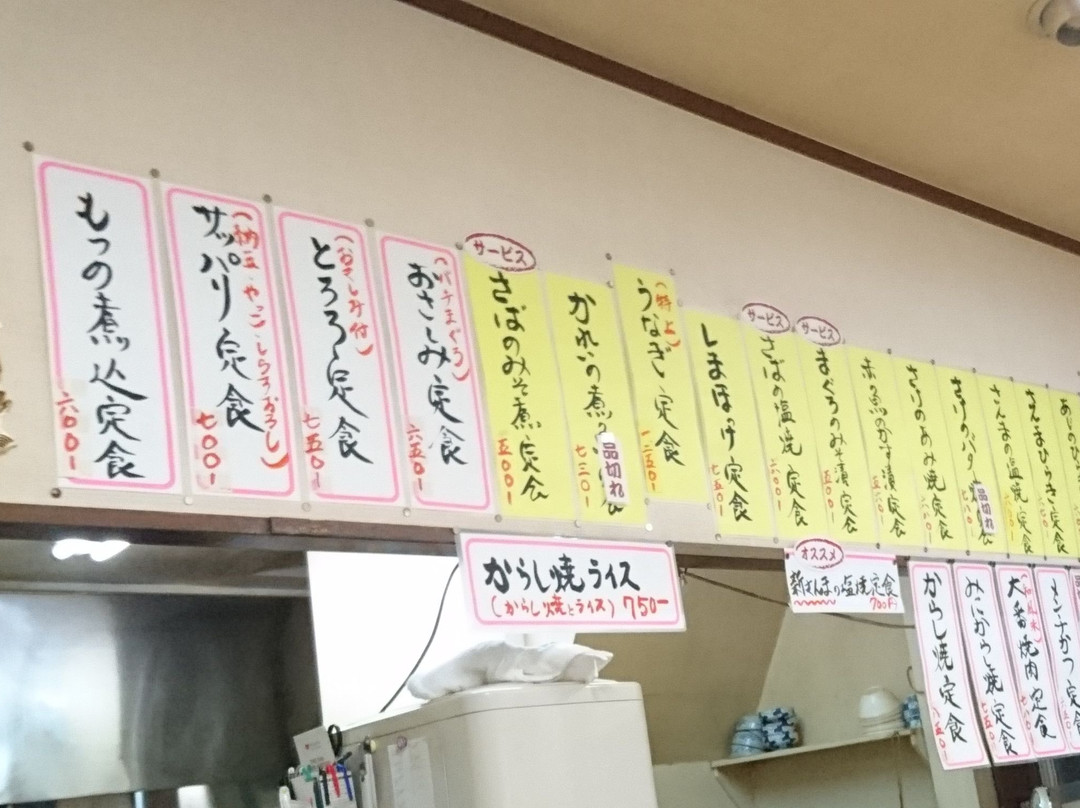 もつの煮込定食
六〇〇
サッパリ定食
(納豆・やっこ・しらすおろし)
七〇〇
とろろ定食
(おさしみ付)
七五〇
おさしみ定食
六五〇
サービス
さばのみそ煮定食
五〇〇
かれいの煮
品切れ
七三〇
うなぎ定食
(特上)
一二五〇
しまほっけ定食
七五〇
サービス
さばの塩焼定食
六〇〇
サービス
まぐろのみそ漬定食
五〇〇
赤魚のかす漬定食
さけのあみ焼定食
さけのバタ
品切れ
さんまの塩焼定食
さんまひらき定食
あじのひ
からし焼ライス
(からし焼とライス) 750ー
オススメ
新さんまの塩焼定食
700円
からし焼定食
八五〇
みにからし焼定食
七五〇
大番焼肉定食
メンチかつ定